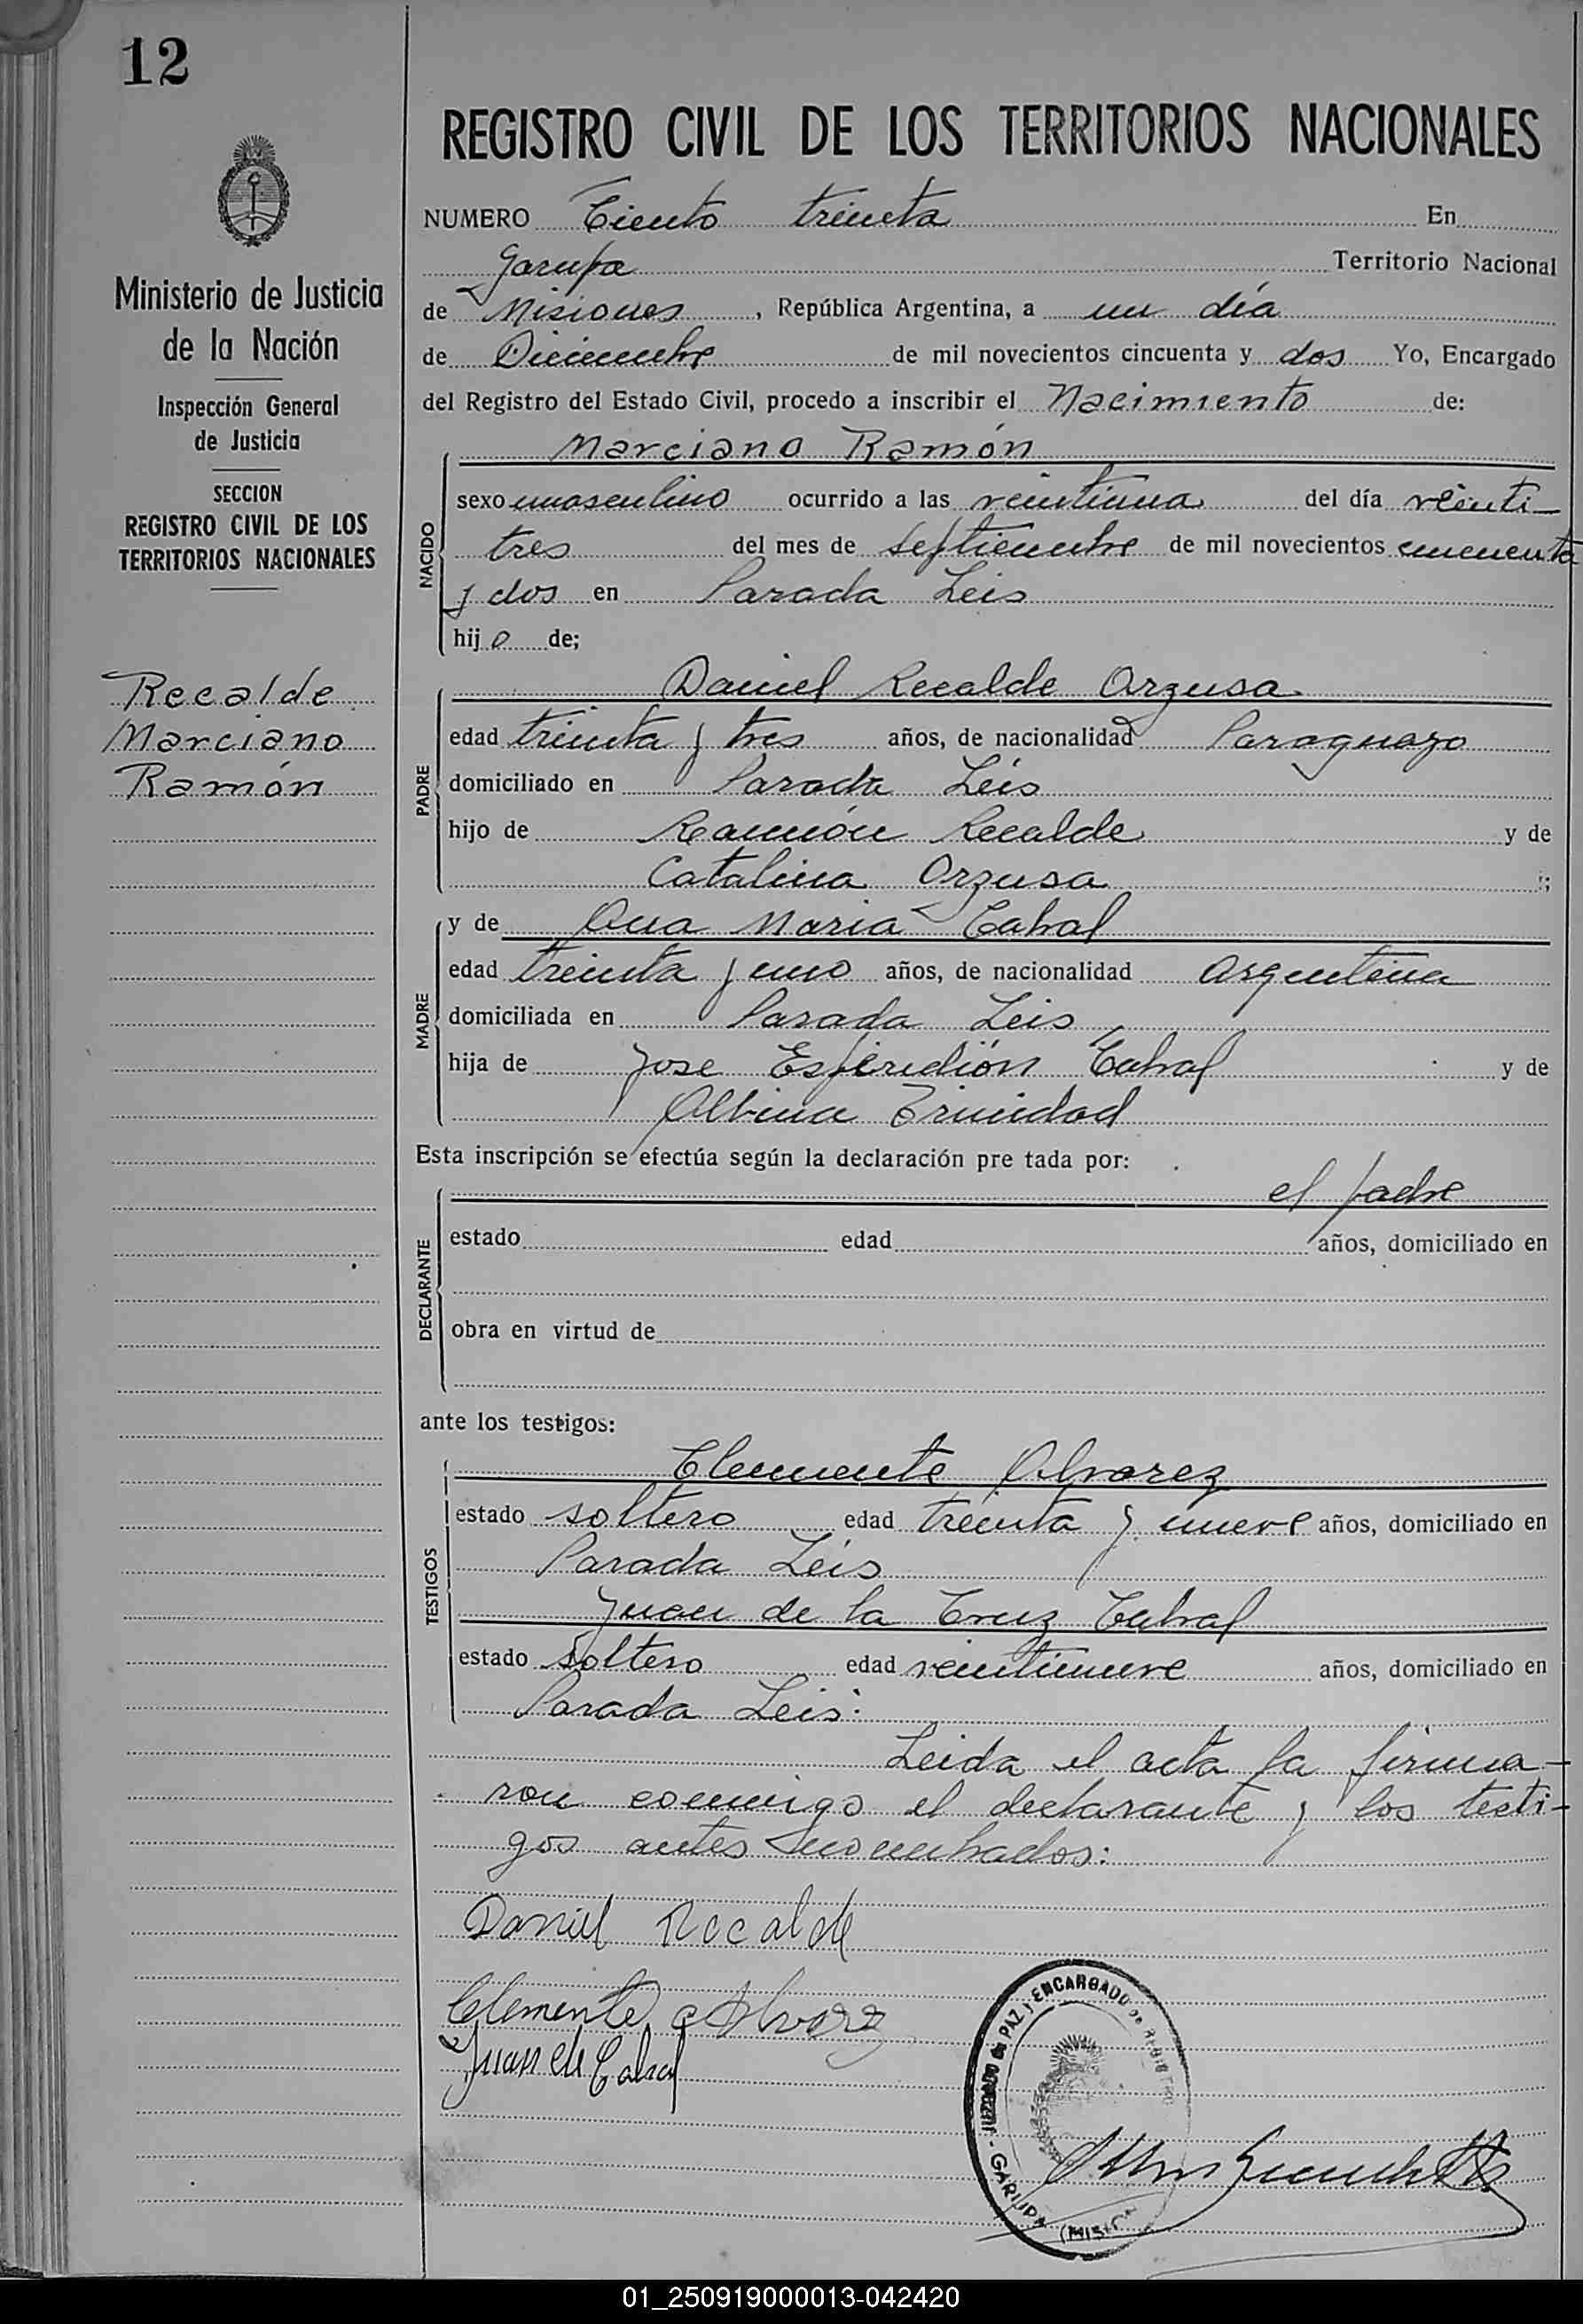 12
REGISTRO CIVIL DE LOS TERRITORIOS NACIONALES
NUMERO Ciento treinta En
Garupa Territorio Nacional
de Misiones, República Argentina, a un día
de Diciembre de mil novecientos cincuenta y dos Yo, Encargado
del Registro del Estado Civil, procedo a inscribir el Nacimiento de:
Marciano Ramón
NACIDO
sexo masculino ocurrido a las veintiuna del día veinti-
tres del mes de septiembre de mil novecientos cincuenta
y dos en Parada Leis
hijo de;
Daniel Recalde Orzusa
PADRE
edad treinta y tres años, de nacionalidad Paraguayo
domiciliado en Parada Leis
hijo de Ramón Recalde y de
Catalina Orzusa ;
MADRE
y de Ana Maria Cabral
edad treinta y uno años, de nacionalidad argentina
domiciliada en Parada Leis
hija de Jose Esperidión Cabral y de
Albina Trinidad
Esta inscripción se efectúa según la declaración pre tada por:
el padre
DECLARANTE
estado edad años, domiciliado en
obra en virtud de
ante los testigos:
Clemente Alvarez
TESTIGOS
estado soltero edad treinta y nueve años, domiciliado en
Parada Leis
Juan de la Cruz Cabral
estado soltero edad veintinueve años, domiciliado en
Parada Leis:
Leida el acta la firma-
ron conmigo el declarante y los testi-
gos antes nombrados:
Daniel Recalde
Clemente Alvarez
Juan de Cabral
JUZGADO de PAZ y ENCARGADO de REGISTRO - GARUPA (MISIONES)
Ministerio de Justicia
de la Nación
Inspección General
de Justicia
SECCION
REGISTRO CIVIL DE LOS
TERRITORIOS NACIONALES
Recalde
Marciano
Ramón
01_250919000013-042420